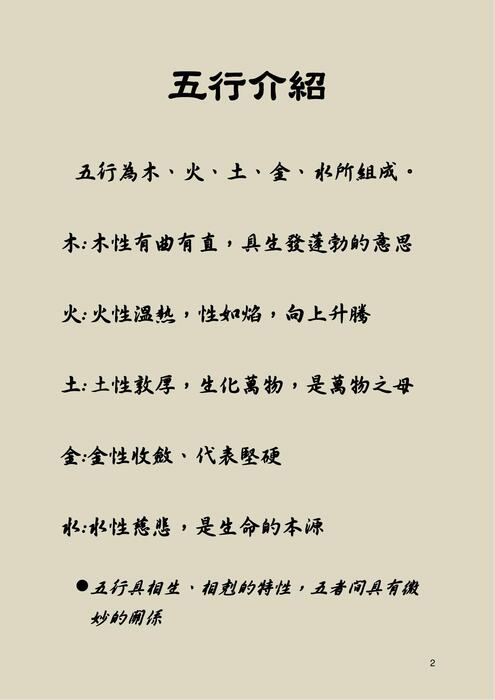 五行介紹
五行為木、火、土、金、水所組成。
木:木性有曲有直，具生發蓬勃的意思
火:火性溫熱，性如焰，向上升騰
土:土性敦厚，生化萬物，是萬物之母
金:金性收斂、代表堅硬
水:水性慈悲，是生命的本源
●五行具相生、相剋的特性，五者間具有微
妙的關係
2